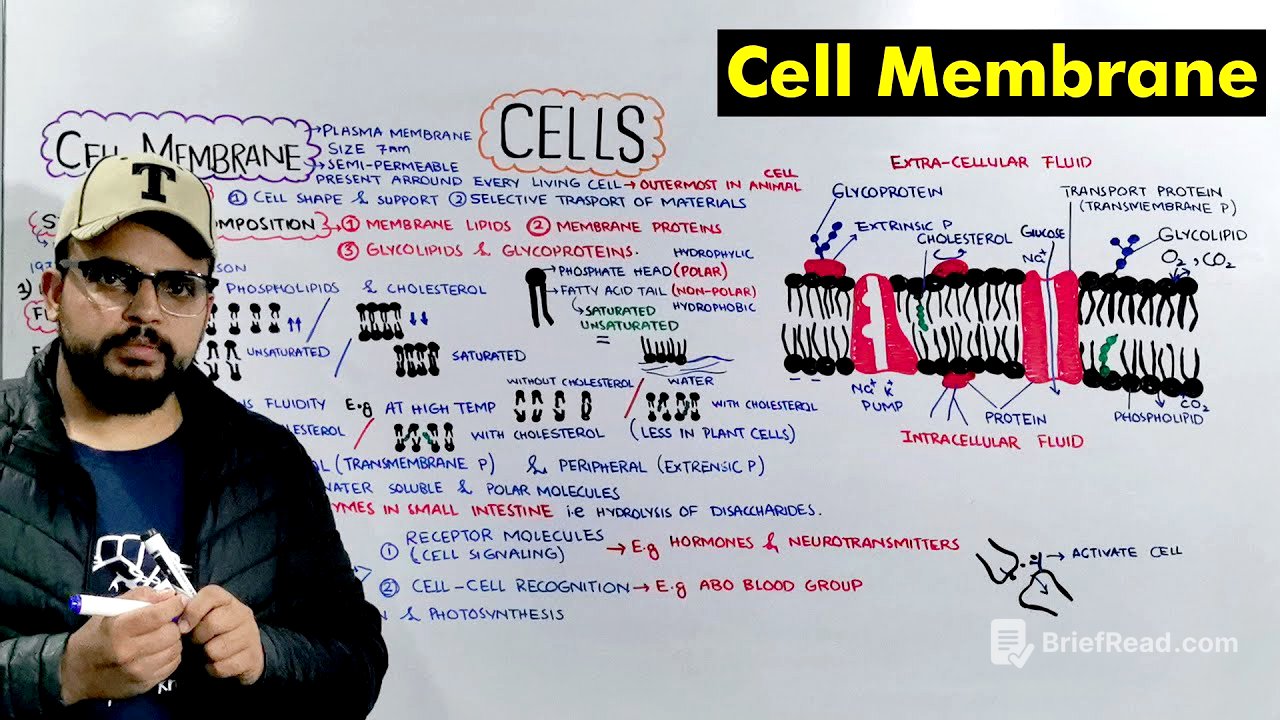 Cell Membrane
CELLS
CELL MEMBRANE
→PLASMA MEMBRANE
SIZE 7nm
→SEMI-PERMEABLE
PRESENT ARROUND EVERY LIVING CELL→OUTERMOST IN ANIMAL CELL
① CELL SHAPE & SUPPORT ② SELECTIVE TRASPORT OF MATERIALS
① MEMBRANE LIPIDS ② MEMBRANE PROTEINS
③ GLYCOLIPIDS & GLYCOPROTEINS.
PHOSPHOLIPIDS & CHOLESTEROL
UNSATURATED
SATURATED
HYDROPHYLIC
→PHOSPHATE HEAD (POLAR)
→FATTY ACID TAIL (NON-POLAR)
HYDROPHOBIC
SATURATED
UNSATURATED
=
WATER
FLUIDITY E.g AT HIGH TEMP
WITHOUT CHOLESTEROL
WITH CHOLESTEROL
WITH CHOLESTEROL (LESS IN PLANT CELLS)
(TRANSMEMBRANE P) & PERIPHERAL (EXTRENSIC P)
WATER SOLUBLE & POLAR MOLECULES
IN SMALL INTESTINE i.e HYDROLYSIS OF DISACCHARIDES.
① RECEPTOR MOLECULES
(CELL SIGNALING)
→E.g HORMONES & NEUROTRANSMITTERS
② CELL-CELL RECOGNITION→E.g ABO BLOOD GROUP
& PHOTOSYNTHESIS
→ACTIVATE CELL
EXTRA-CELLULAR FLUID
GLYCOPROTEIN
EXTRINSIC P
CHOLESTEROL
GLUCOSE
Na+
TRANSPORT PROTEIN
(TRANSMEMBRANE P)
GLYCOLIPID
O2, CO2
Na+ K+
PUMP
PROTEIN
CO2
PHOSPHOLIPID
INTRACELLULAR FLUID
T
BriefRead.com